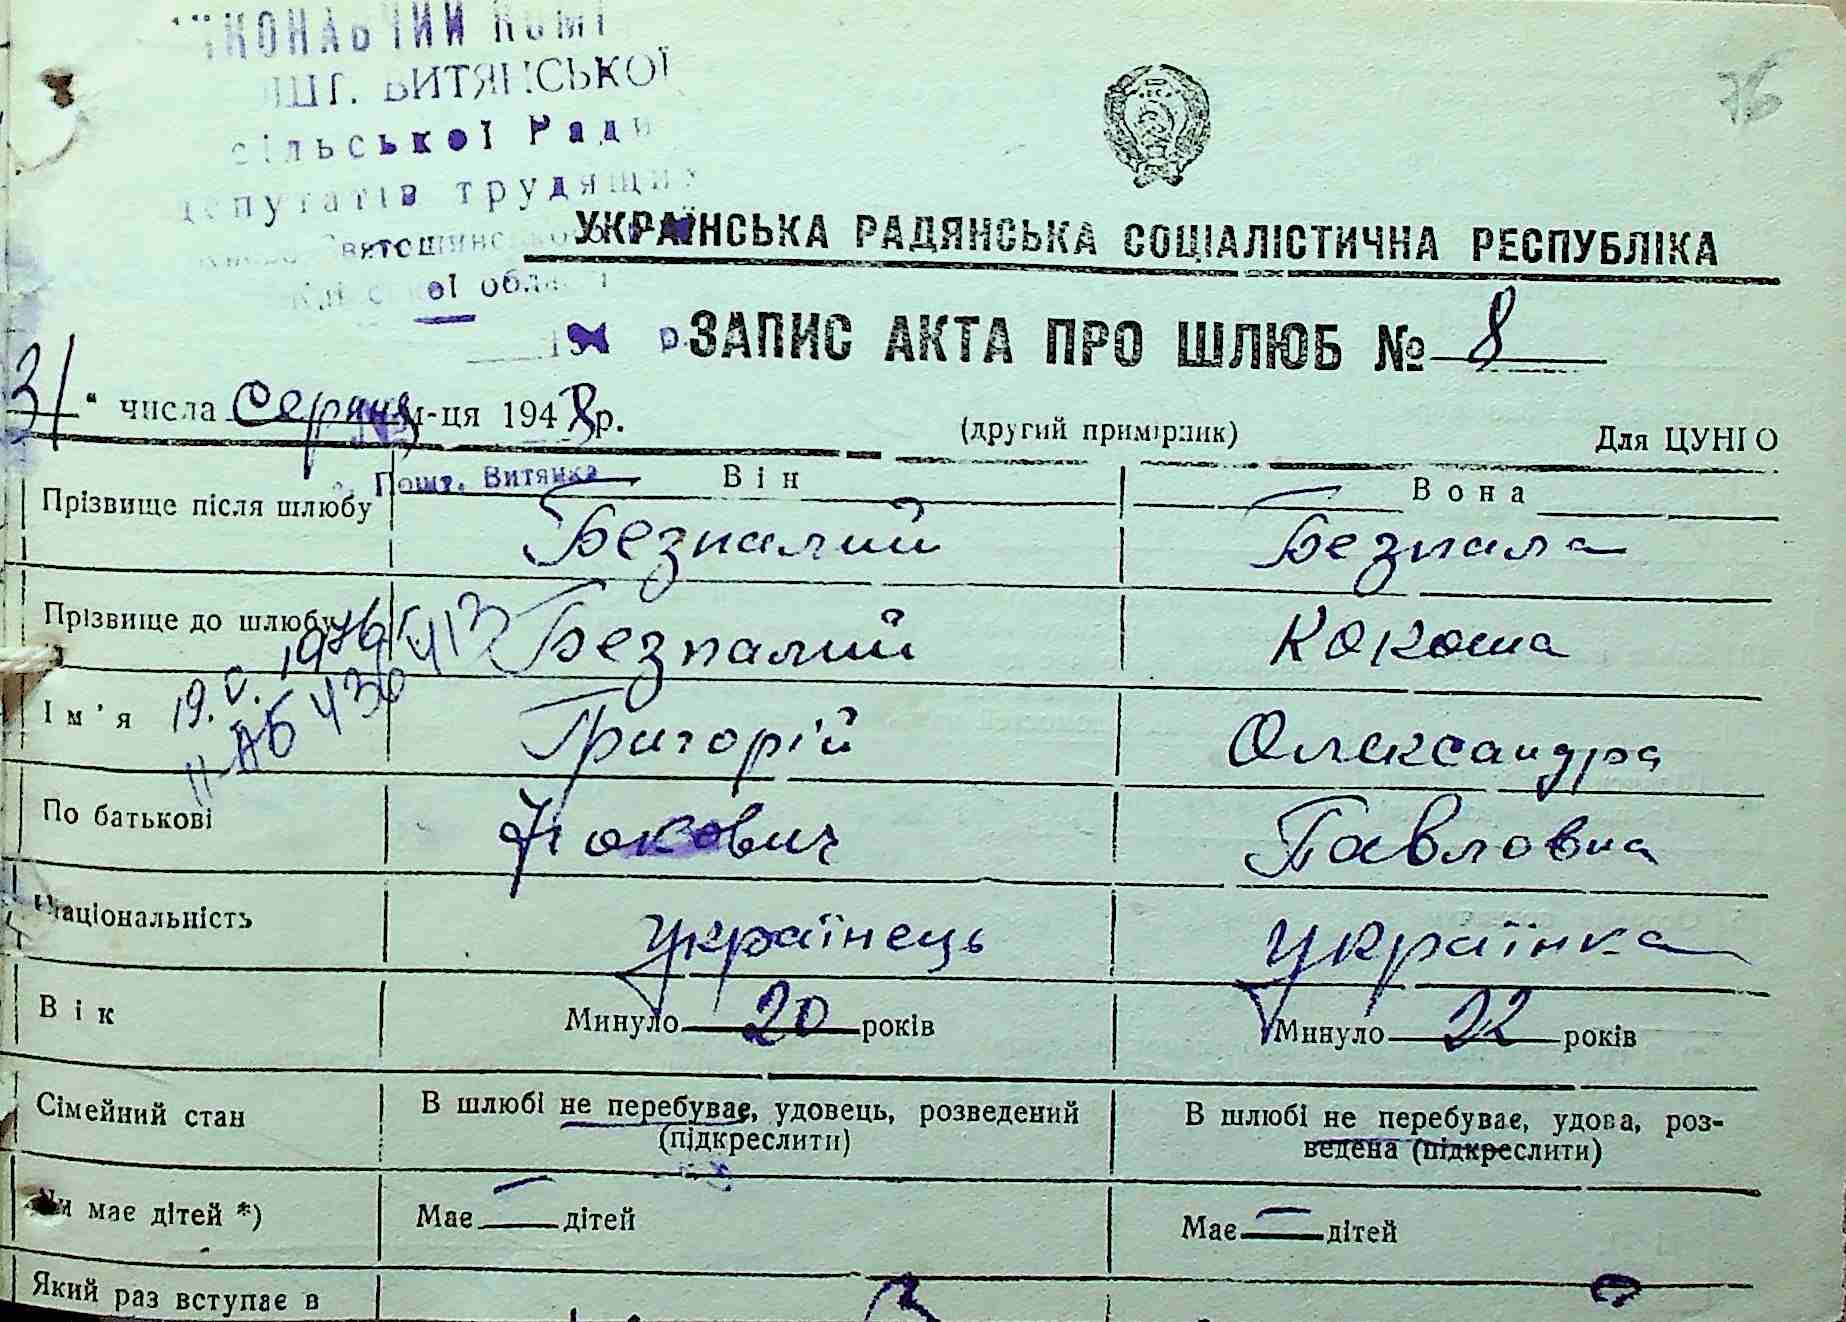 76
ВИТЯНСЬКОЇ
сільської Ради
депутатів трудящих
УКРАЇНСЬКА РАДЯНСЬКА СОЦІАЛІСТИЧНА РЕСПУБЛІКА
ої області
ЗАПИС АКТА ПРО ШЛЮБ № 8
31 " числа серпня м-ця 1948 р.
(другий примірник) Для ЦУНГО
Пошт. Витянка
Він Вона
Прізвище після шлюбу Безпалий Безпала
Прізвище до шлюбу Безпалий Кокоша
Ім'я Григорій Олександра
19. V. 1976
II-АБ
По батькові Павловна
Національність українець українка
Вік Минуло 20 років Минуло 22 років
Сімейний стан В шлюбі не перебуває, удовець, розведений (підкреслити) В шлюбі не перебуває, удова, роз-
ведена (підкреслити)
Чи має дітей *) Має — дітей Має — дітей
Який раз вступає в